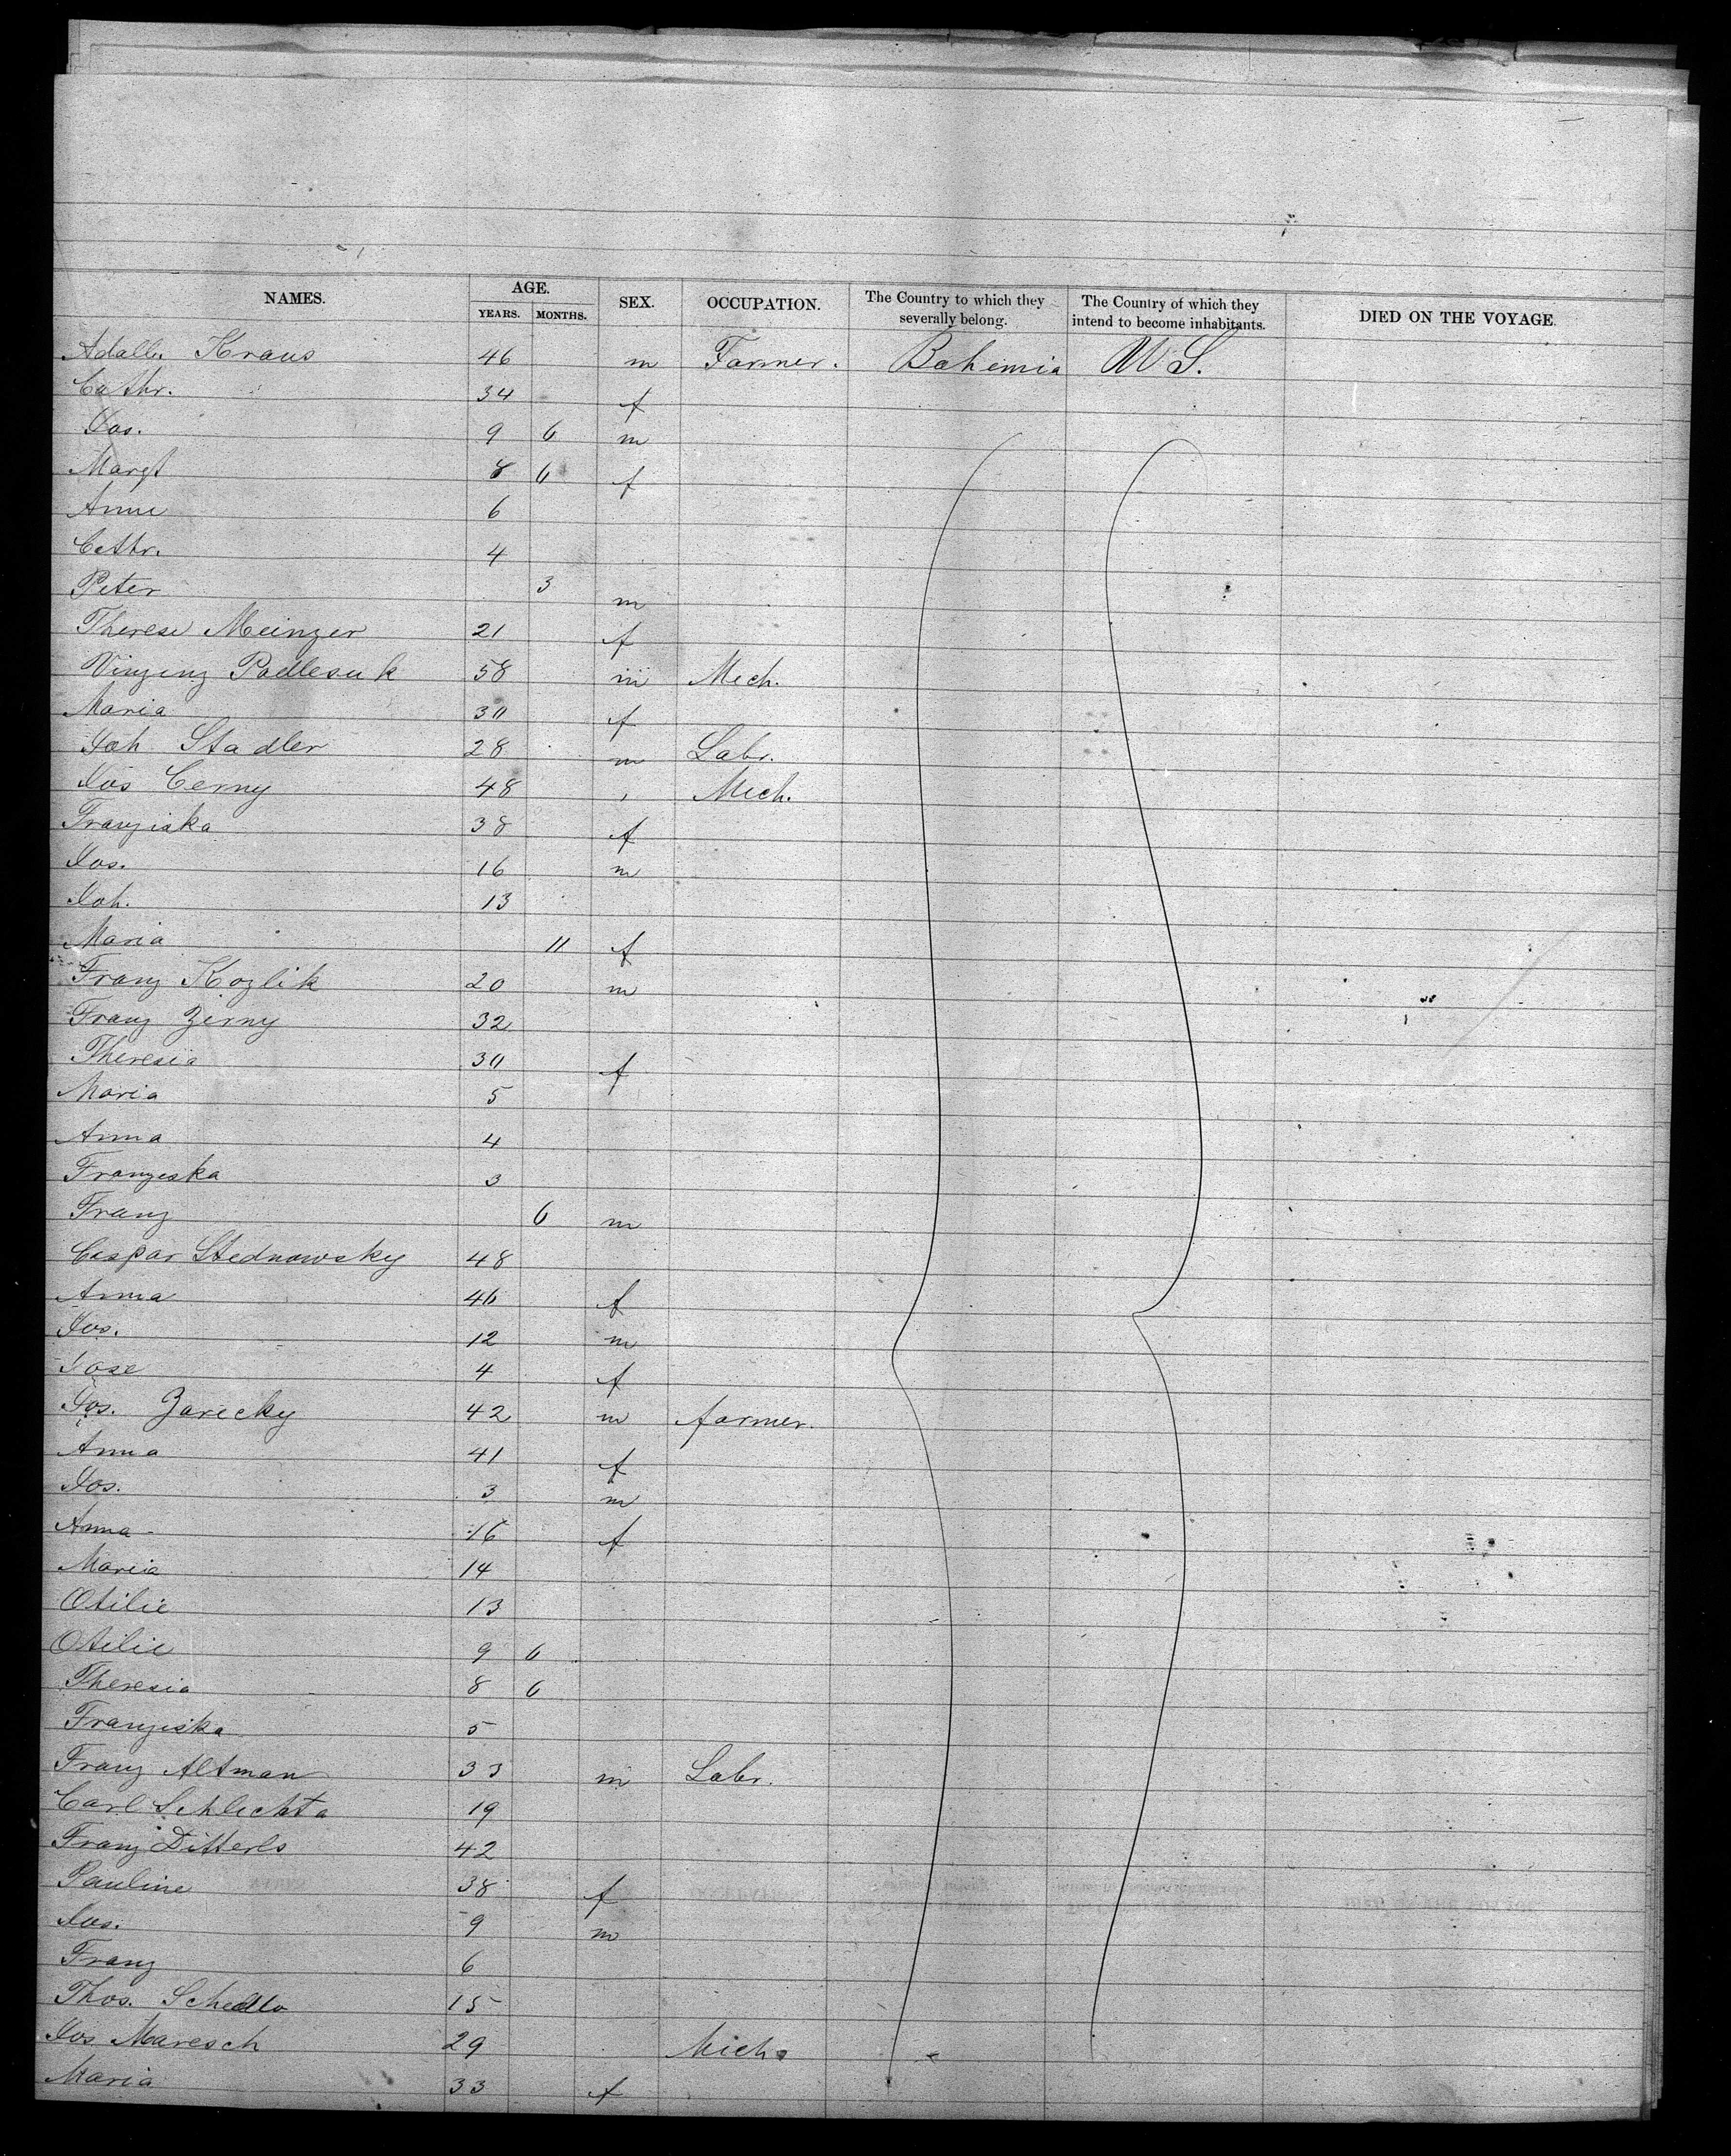 NAMES. AGE. SEX. OCCUPATION. The Country to which they severally belong. The Country of which they intend to become inhabitants. DIED ON THE VOYAGE.
YEARS. MONTHS.
Adalb. Kraus 46 m Farmer. Bohemia U S.
Cathr. 34 f
Jos. 9 6 m
Margt 8 6 f
Anne 6
Cathr. 4
Peter 3 m
Therese Meinzer 21 f
Vinzenz Podlesak 58 m Mech.
Maria 30 f
Joh Stadler 28 m Labr.
Jos Cerny 48 Mech.
Franziska 38 f
Jos. 16 m
Joh. 13
Maria 11 f
Franz Kozlik 20 m
Franz Zerny 32
Theresia 30 f
Maria 5
Anna 4
Franzeska 3
Franz 6 m
Caspar Stednowsky 48
Anna 46 f
Jos. 12 m
Jose 4 f
Jos. Zarecky 42 m farmer.
Anna 41 f
Jos. 3 m
Anna 16 f
Maria 14
Otilie 13
Otilie 9 6
Theresia 8 6
Franziska 5
Franz Altman 33 m Labr.
Carl Schlechta 19
Franz Ditterls 42
Pauline 38 f
Jos. 9 m
Franz 6
Thos. Schedlo 15
Jos Maresch 29 Mech.
Maria 33 f